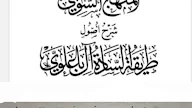 المنهج السوي
شرح أصول
طريقة السادة آل باعلوي